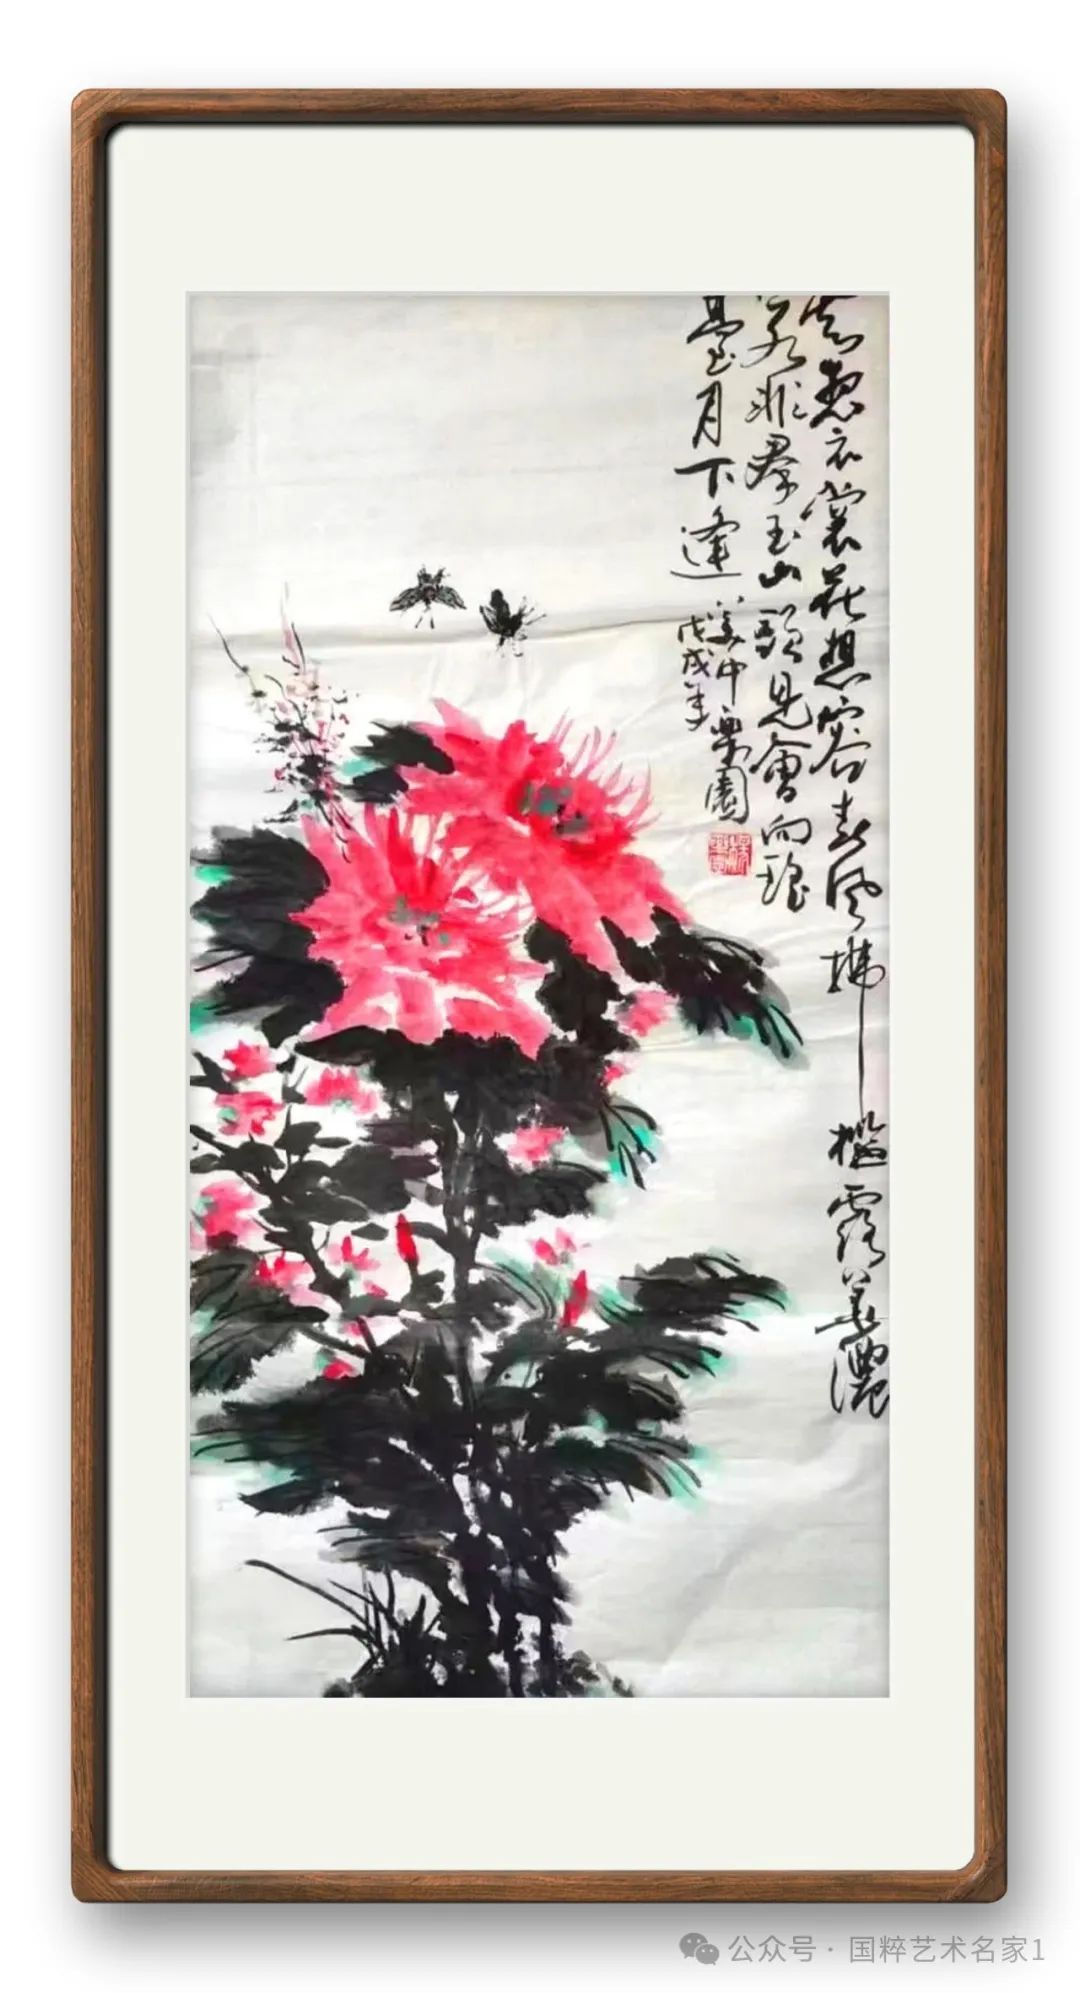 云想衣裳花想容春风拂槛露华濃
若非群玉山頭見會向瑶
臺月下逢
戊戌年
公众号 · 国粹艺术名家1